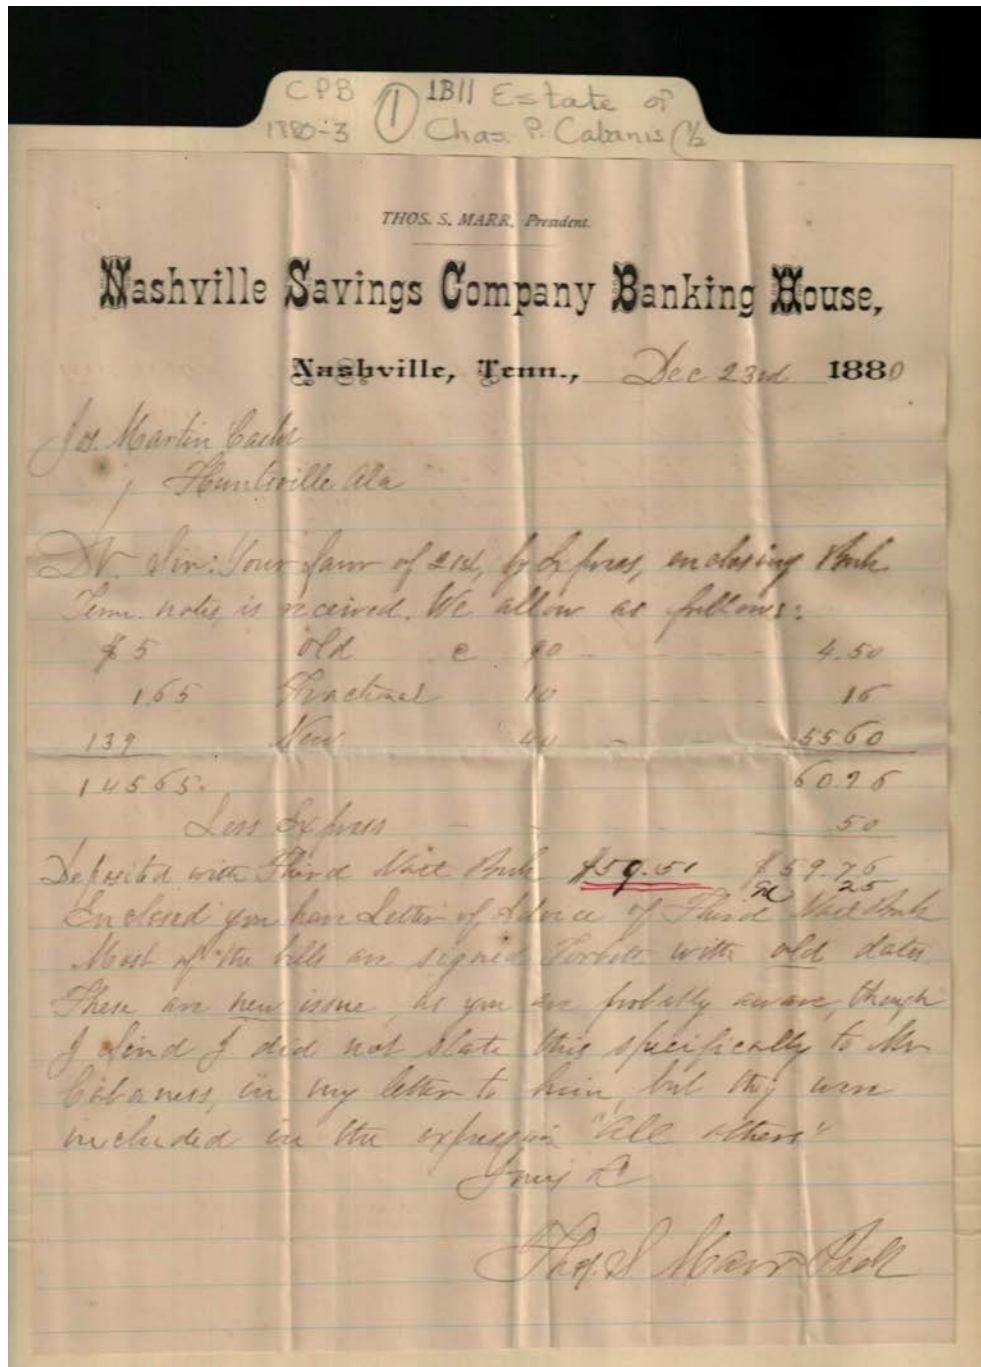 CPB ① 1B11 Estate of
1880-3 Chas. P. Cabanis (1/2
THOS. S. MARR, President.
Nashville Savings Company Banking House,
Nashville, Tenn., Dec 23rd 1880
Jos. Martin
Huntsville Ala
Dr. Sir: Your favr of 21st, by Express, enclosing Bank
Tenn. notes, is received. We allow as follows:
$5 old @ 90 - - - - 4.50
1.65 Fractional 10 - - - 16
139 New 40 - - 5560
14565. 60.26
Less Express - - - - 50
Deposited with Third Natl Bank $59.51 $59.76
25
Enclosed you have Letter of Advice of Third Natl Bank
Most of the bills are signed Torbett with old dates
These are new issue, as you are probably aware, though
I find I did not state this specifically to Mr
Cabaness, in my letter to him, but they were
included in the expression "all others"
Yours &c
Thos. S. Marr Prest